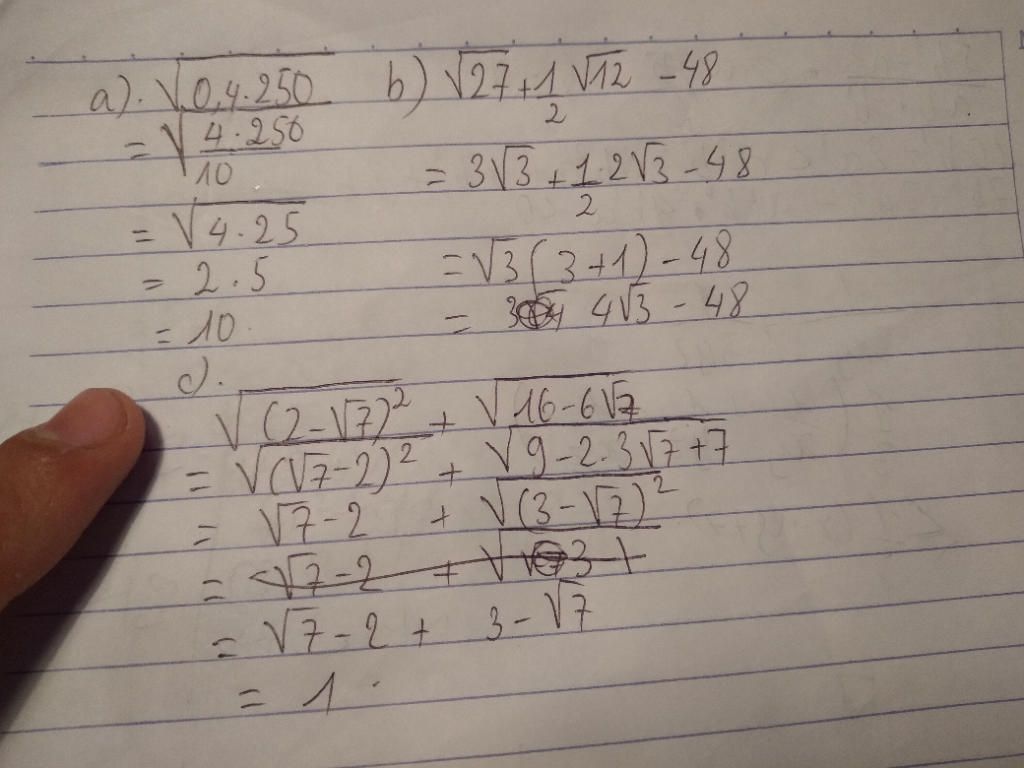 a). √(0,4·250)
= √(4·250/10)
= √(4·25)
= 2·5
= 10
b) √27 + 1/2 √12 - 48
= 3√3 + 1/2·2√3 - 48
= √3(3+1) - 48
= 4√3 - 48
c).
√((2-√7)²) + √(16-6√7)
= √((√7-2)²) + √(9-2·3√7+7)
= √7-2 + √((3-√7)²)
= √7-2 +
= √7-2 + 3-√7
= 1